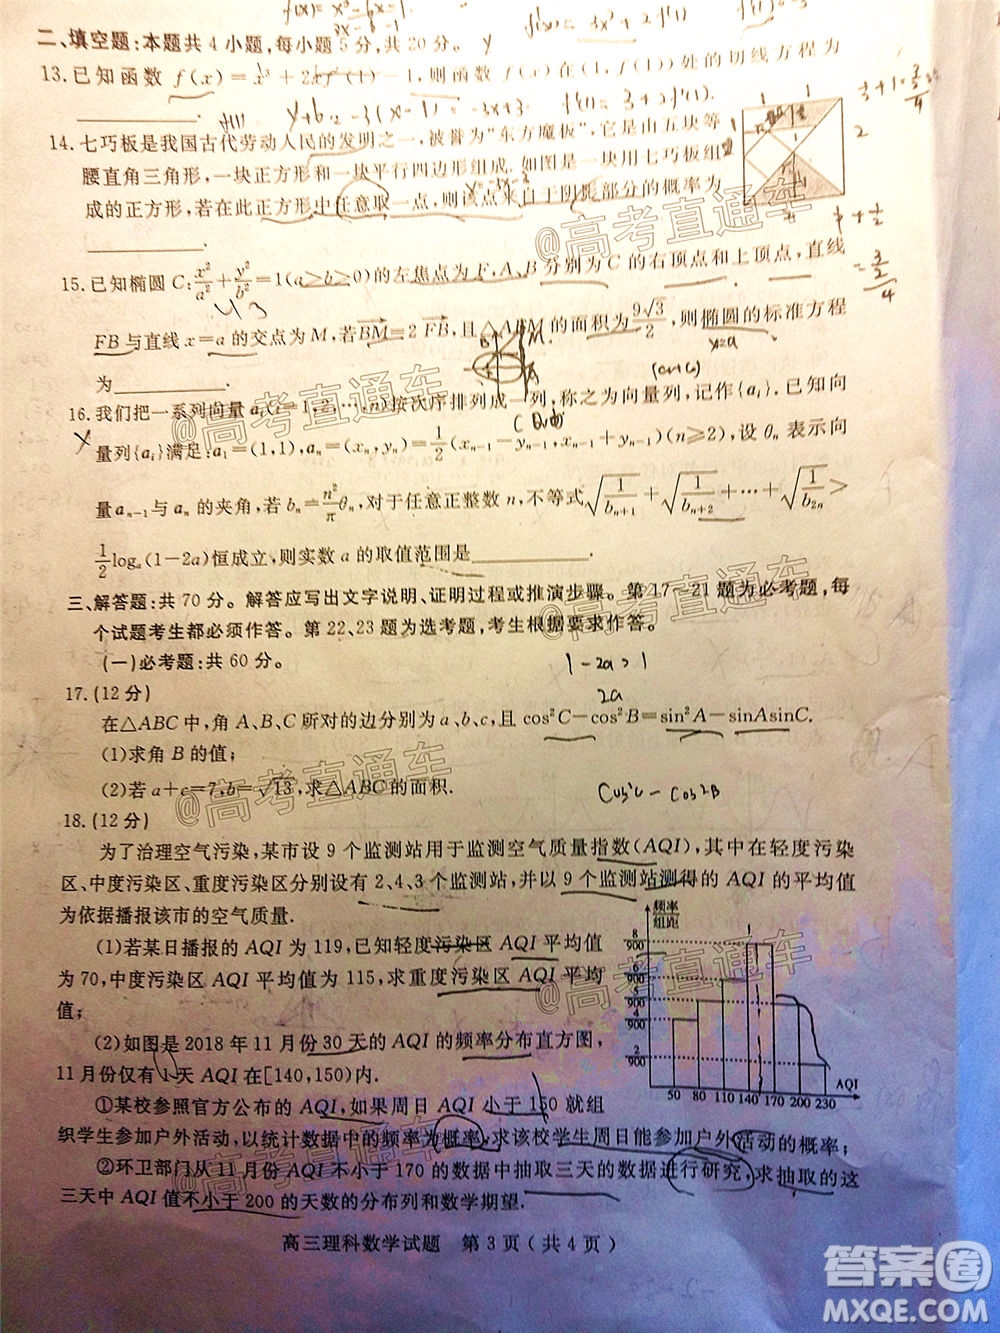 二、填空题:本题共 4 小题,每小题 5 分,共 20 分。
13.已知函数 f(x)=x³+2xf′(1)-1,则函数 f(x)在(1,f(1))处的切线方程为
________.
14.七巧板是我国古代劳动人民的发明之一,被誉为“东方魔板”,它是由五块等
腰直角三角形,一块正方形和一块平行四边形组成.如图是一块用七巧板组
成的正方形,若在此正方形中任意取一点,则该点来自于阴影部分的概率为
________.
15.已知椭圆 C:x²/a²+y²/b²=1(a≥b≥0)的左焦点为 F,A、B 分别为 C 的右顶点和上顶点,直线
FB 与直线 x=a 的交点为 M,若BM=2 FB,且△ABM 的面积为9√3/2,则椭圆的标准方程
为________.
16.我们把一系列向量 aᵢ(i=1,2,…,n)按次序排列成一列,称之为向量列,记作{aᵢ}.已知向
量列{aᵢ}满足:a₁=(1,1),aₙ=(xₙ,yₙ)=1/2(xₙ₋₁-yₙ₋₁,xₙ₋₁+yₙ₋₁)(n≥2),设 θₙ 表示向
量aₙ₋₁与 aₙ 的夹角,若 bₙ=n²/π θₙ,对于任意正整数 n,不等式√(1/bₙ₊₁)+√(1/bₙ₊₂)+…+√(1/b₂ₙ)>
1/2 logₐ(1-2a)恒成立,则实数 a 的取值范围是________.
三、解答题:共 70 分。解答应写出文字说明、证明过程或推演步骤。第 17～21 题为必考题,每
个试题考生都必须作答。第 22、23 题为选考题,考生根据要求作答。
(一)必考题:共 60 分。
1-2a>1
17.(12 分)
2a
在△ABC 中,角 A、B、C 所对的边分别为 a、b、c,且 cos²C-cos²B=sin²A-sinAsinC.
(1)求角 B 的值;
(2)若 a+c=7,b=√13,求△ABC 的面积.
cos²C-cos²B
18.(12 分)
为了治理空气污染,某市设 9 个监测站用于监测空气质量指数(AQI),其中在轻度污染
区、中度污染区、重度污染区分别设有 2、4、3 个监测站,并以 9 个监测站测得的 AQI 的平均值
为依据播报该市的空气质量.
(1)若某日播报的 AQI 为 119,已知轻度污染区 AQI 平均值
为 70,中度污染区 AQI 平均值为 115,求重度污染区 AQI 平均
值;
(2)如图是 2018 年 11 月份 30 天的 AQI 的频率分布直方图,
11 月份仅有 1 天 AQI 在[140,150)内.
①某校参照官方公布的 AQI,如果周日 AQI 小于 150 就组
织学生参加户外活动,以统计数据中的频率为概率,求该校学生周日能参加户外活动的概率;
②环卫部门从 11 月份 AQI 不小于 170 的数据中抽取三天的数据进行研究,求抽取的这
三天中 AQI 值不小于 200 的天数的分布列和数学期望.
频率
组距
8/900
6/900
5/900
4/900
2/900
50 80 110 140 170 200 230 AQI
高三理科数学试题 第 3 页(共 4 页)
@高考直通车
@高考直通车
@高考直通车
@高考直通车
@高考直通车
@高考直通车
答案圈
MXQE.COM